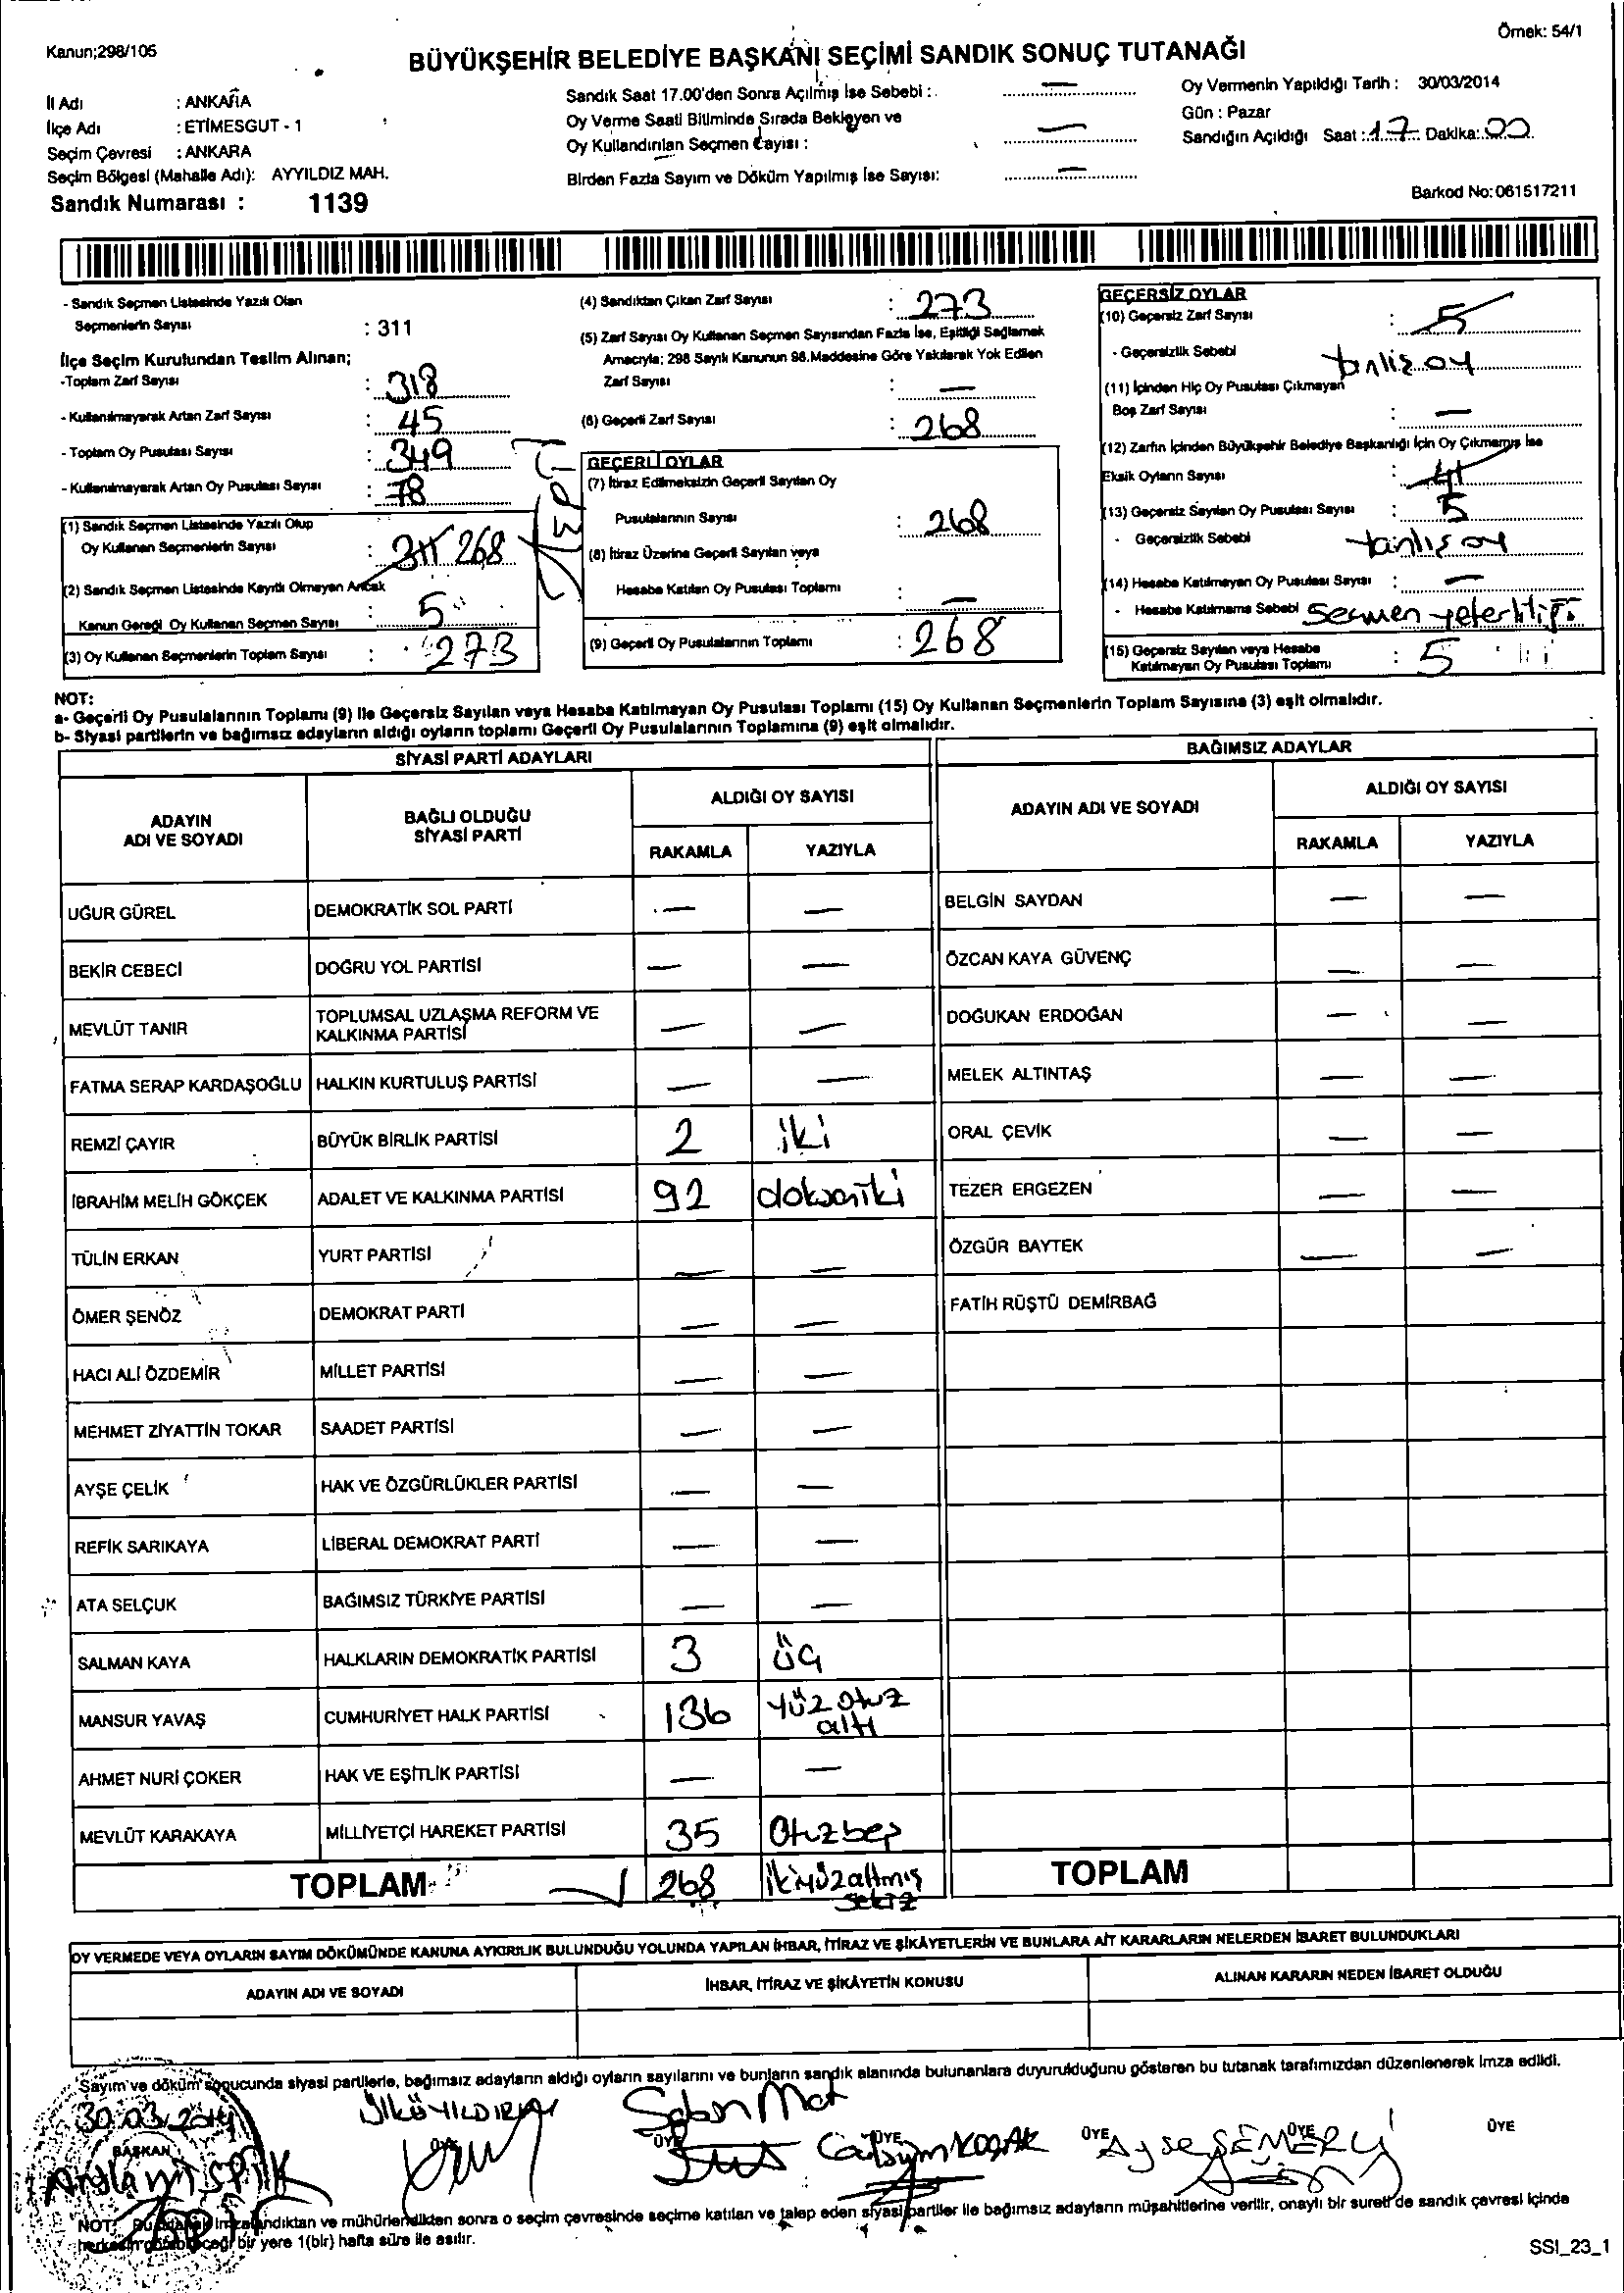 Kanun;298/105
Örnek: 54/1
BÜYÜKŞEHİR BELEDİYE BAŞKANI SEÇİMİ SANDIK SONUÇ TUTANAĞI
İl Adı : ANKARA
İlçe Adı : ETİMESGUT - 1
Seçim Çevresi : ANKARA
Seçim Bölgesi (Mahalle Adı): AYYILDIZ MAH.
Sandık Numarası : 1139
Sandık Saat 17.00'den Sonra Açılmış İse Sebebi : —
Oy Verme Saati Bitiminde Sırada Bekleyen ve
Oy Kullandırılan Seçmen Sayısı : —
Birden Fazla Sayım ve Döküm Yapılmış İse Sayısı: —
Oy Vermenin Yapıldığı Tarih : 30/03/2014
Gün : Pazar
Sandığın Açıldığı Saat : 17 Dakika: 00
Barkod No: 061517211
- Sandık Seçmen Listesinde Yazılı Olan
Seçmenlerin Sayısı : 311
İlçe Seçim Kurulundan Teslim Alınan;
-Toplam Zarf Sayısı : 318
- Kullanılmayarak Artan Zarf Sayısı : 45
- Toplam Oy Pusulası Sayısı : 349
- Kullanılmayarak Artan Oy Pusulası Sayısı : 78
(1) Sandık Seçmen Listesinde Yazılı Olup
Oy Kullanan Seçmenlerin Sayısı : 311 268
(2) Sandık Seçmen Listesinde Kayıtlı Olmayan Ancak
Kanun Gereği Oy Kullanan Seçmen Sayısı : 5
(3) Oy Kullanan Seçmenlerin Toplam Sayısı : 273
(4) Sandıktan Çıkan Zarf Sayısı : 273
(5) Zarf Sayısı Oy Kullanan Seçmen Sayısından Fazla İse, Eşitliği Sağlamak
Amacıyla; 298 Sayılı Kanunun 98.Maddesine Göre Yakılarak Yok Edilen
Zarf Sayısı : —
(6) Geçerli Zarf Sayısı : 268
GEÇERLİ OYLAR
(7) İtiraz Edilmeksizin Geçerli Sayılan Oy
Pusulalarının Sayısı : 268
(8) İtiraz Üzerine Geçerli Sayılan veya
Hesaba Katılan Oy Pusulası Toplamı : —
(9) Geçerli Oy Pusulalarının Toplamı : 268
GEÇERSİZ OYLAR
(10) Geçersiz Zarf Sayısı : 5
- Geçersizlik Sebebi
(11) İçinden Hiç Oy Pusulası Çıkmayan
Boş Zarf Sayısı : —
(12) Zarfın İçinden Büyükşehir Belediye Başkanlığı İçin Oy Çıkmamış İse
Eksik Oyların Sayısı :
(13) Geçersiz Sayılan Oy Pusulası Sayısı : 5
- Geçersizlik Sebebi yanlış oy
(14) Hesaba Katılmayan Oy Pusulası Sayısı : —
- Hesaba Katılmama Sebebi Seçmen yeterliliği
(15) Geçersiz Sayılan veya Hesaba
Katılmayan Oy Pusulası Toplamı : 5
NOT:
a- Geçerli Oy Pusulalarının Toplamı (9) İle Geçersiz Sayılan veya Hesaba Katılmayan Oy Pusulası Toplamı (15) Oy Kullanan Seçmenlerin Toplam Sayısına (3) eşit olmalıdır.
b- Siyasi partilerin ve bağımsız adayların aldığı oyların toplamı Geçerli Oy Pusulalarının Toplamına (9) eşit olmalıdır.
SİYASİ PARTİ ADAYLARI
BAĞIMSIZ ADAYLAR
ADAYIN
ADI VE SOYADI
BAĞLI OLDUĞU
SİYASİ PARTİ
ALDIĞI OY SAYISI
RAKAMLA YAZIYLA
ADAYIN ADI VE SOYADI
ALDIĞI OY SAYISI
RAKAMLA YAZIYLA
UĞUR GÜREL DEMOKRATİK SOL PARTİ — — BELGİN SAYDAN — —
BEKİR CEBECİ DOĞRU YOL PARTİSİ — — ÖZCAN KAYA GÜVENÇ — —
MEVLÜT TANIR TOPLUMSAL UZLAŞMA REFORM VE
KALKINMA PARTİSİ — — DOĞUKAN ERDOĞAN — —
FATMA SERAP KARDAŞOĞLU HALKIN KURTULUŞ PARTİSİ — — MELEK ALTINTAŞ — —
REMZİ ÇAYIR BÜYÜK BİRLİK PARTİSİ 2 iki ORAL ÇEVİK — —
İBRAHİM MELİH GÖKÇEK ADALET VE KALKINMA PARTİSİ 92 doksaniki TEZER ERGEZEN — —
TÜLİN ERKAN YURT PARTİSİ — — ÖZGÜR BAYTEK — —
ÖMER ŞENÖZ DEMOKRAT PARTİ — — FATİH RÜŞTÜ DEMİRBAĞ
HACI ALİ ÖZDEMİR MİLLET PARTİSİ — —
MEHMET ZİYATTİN TOKAR SAADET PARTİSİ — —
AYŞE ÇELİK HAK VE ÖZGÜRLÜKLER PARTİSİ — —
REFİK SARIKAYA LİBERAL DEMOKRAT PARTİ — —
ATA SELÇUK BAĞIMSIZ TÜRKİYE PARTİSİ — —
SALMAN KAYA HALKLARIN DEMOKRATİK PARTİSİ 3 üç
MANSUR YAVAŞ CUMHURİYET HALK PARTİSİ 136 yüz otuz
altı
AHMET NURİ ÇOKER HAK VE EŞİTLİK PARTİSİ — —
MEVLÜT KARAKAYA MİLLİYETÇİ HAREKET PARTİSİ 35 Otuzbeş
TOPLAM 268 ikiyüzaltmış
sekiz
TOPLAM
OY VERMEDE VEYA OYLARIN SAYIM DÖKÜMÜNDE KANUNA AYKIRILIK BULUNDUĞU YOLUNDA YAPILAN İHBAR, İTİRAZ VE ŞİKÂYETLERİN VE BUNLARA AİT KARARLARIN NELERDEN İBARET BULUNDUKLARI
ADAYIN ADI VE SOYADI
İHBAR, İTİRAZ VE ŞİKÂYETİN KONUSU
ALINAN KARARIN NEDEN İBARET OLDUĞU
Sayım ve döküm sonucunda siyasi partilerle, bağımsız adayların aldığı oyların sayılarını ve bunların sandık alanında bulunanlara duyurulduğunu gösteren bu tutanak tarafımızdan düzenlenerek imza edildi.
30.03.2014
BAŞKAN
ÜYE ÜYE ÜYE ÜYE ÜYE ÜYE
NOT: Bu tutanak imzalandıktan ve mühürlendikten sonra o seçim çevresinde seçime katılan ve talep eden siyasi partiler ile bağımsız adayların müşahitlerine verilir, onaylı bir sureti de sandık çevresi içinde
herkesin görebileceği bir yere 1(bir) hafta süre ile asılır.
SSI_23_1